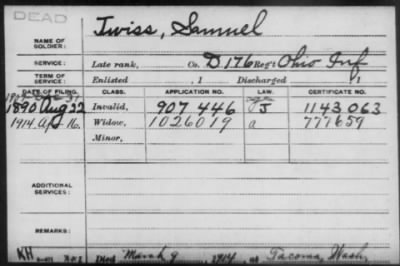 DEAD
NAME OF SOLDIER: Twiss, Samuel
SERVICE: Late rank, Co. D 176 Reg't Ohio Inf
TERM OF SERVICE: Enlisted , 1 Discharged 1
DATE OF FILING. CLASS. APPLICATION NO. LAW. CERTIFICATE NO.
1890 Aug 22 Invalid, 907446 J 1143063
1914 Apr 16. Widow, 1026019 a 777659
Minor,
ADDITIONAL SERVICES:
REMARKS:
KH Died March 9, 1914, at Tacoma, Wash,